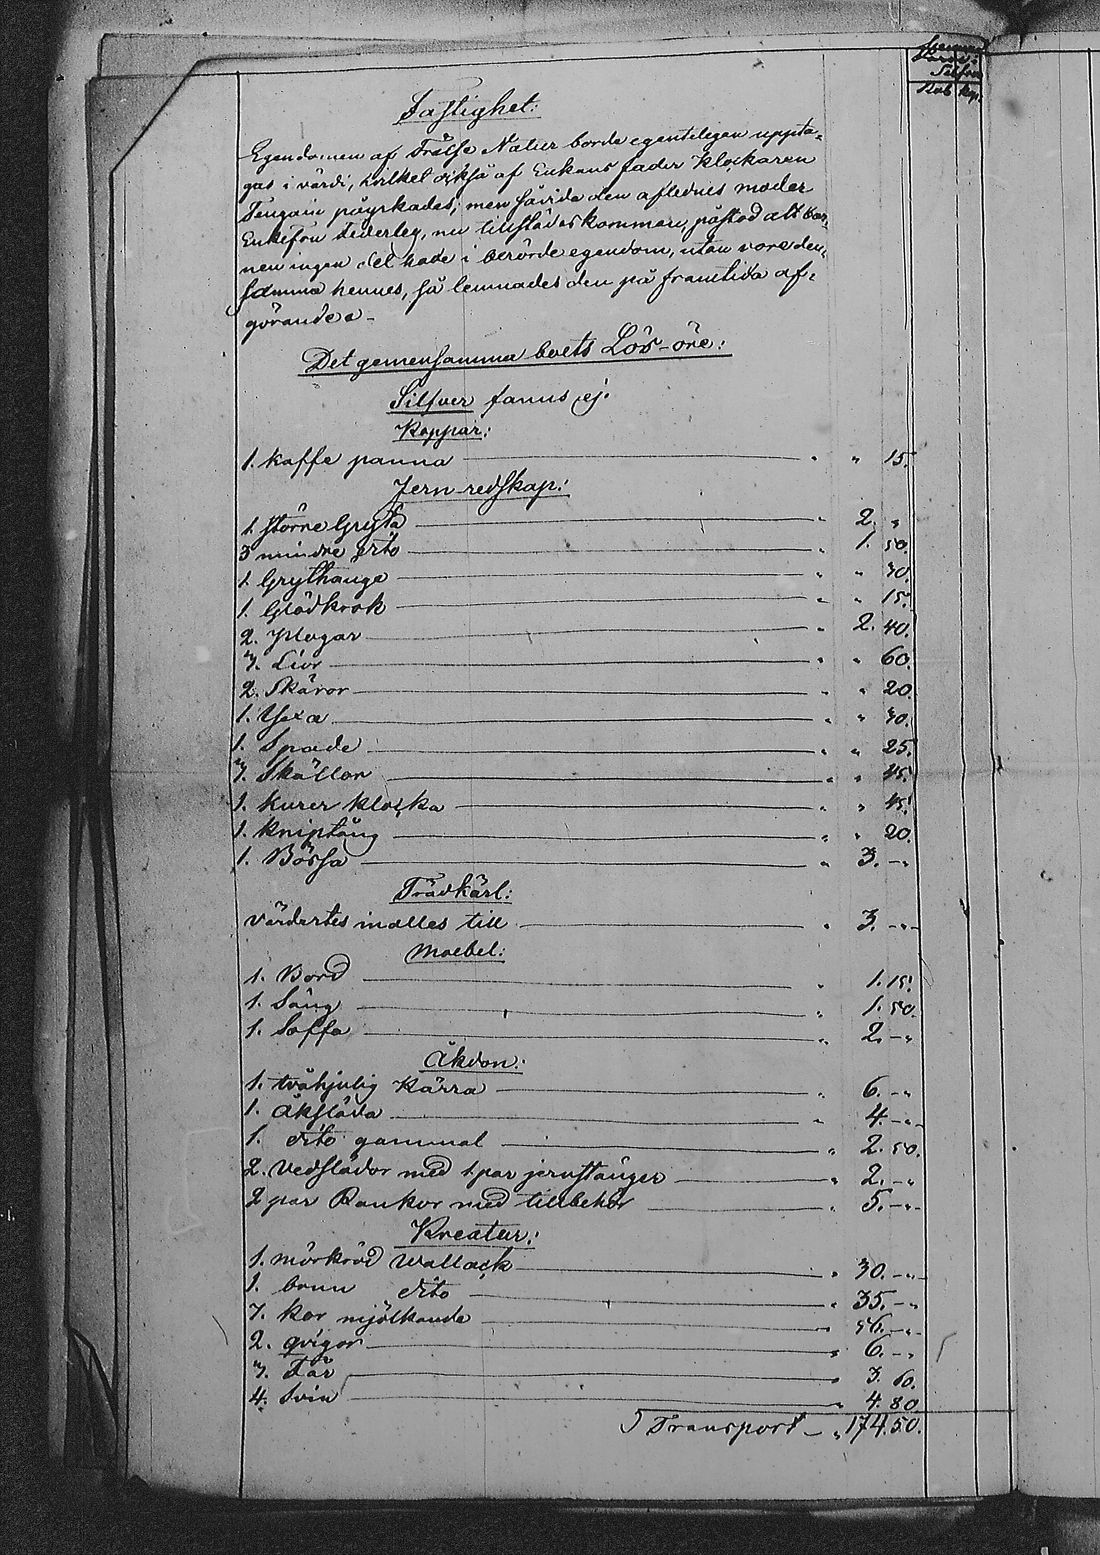 Silfver
Rub. kop.
Fastighet:
Egendomen af Frälse Natur borde egenteligen uppta-
gas i värde, hvilket också af Enkans fader klockaren
påyrkades; men såvida den aflednes moder
Enkefru nu tillstädeskommen, påstod att bar-
nen ingen del hade i berörde egendom, utan vore den-
samma hennes, så lemnades den på framtida af-
görande
Det gemensamma boets Lös-öre:
Silfver fanns ej.
Koppar:
1. kaffe panna " " 15.
Jern-redskap:
1. större Gryta " 2. "
3 mindre dito " 1. 50.
1. Grythange " " 30.
1. Glödkrok " " 15.
2. Plogar " 2. 40.
7. Liar " " 60.
2. Skäror " " 20.
1. Yxa " " 30.
1. Spade " " 25.
7. Skällor " " 45.
1. kurer klocka " " 45.
1. kniptång " " 20.
1. Bössa " 3. -"
Trädkärl:
värdertes inalles till " 3. -"-
Moebel:
1. Bord " 1. 15.
1. Säng " 1. 50.
1. Soffa " 2. -"
Åkdon:
1. tvåhjulig Kärra " 6. -"
1. Åksläda " 4. -"
1. dito gammal " 2. 50.
2. Vedslädor med 1 par jernstänger " 2. -"
2 par Rankor med tillbehör " 5. -"-
Kreatur:
1. mörkröd Wallack " 30. -"
1. brun dito " 35. -"
7. kor mjölkande " 56. -"
2. qvigor " 6. -"
7. Får " 3. 60.
4. Svin " 4. 80
Transport " 174.50.